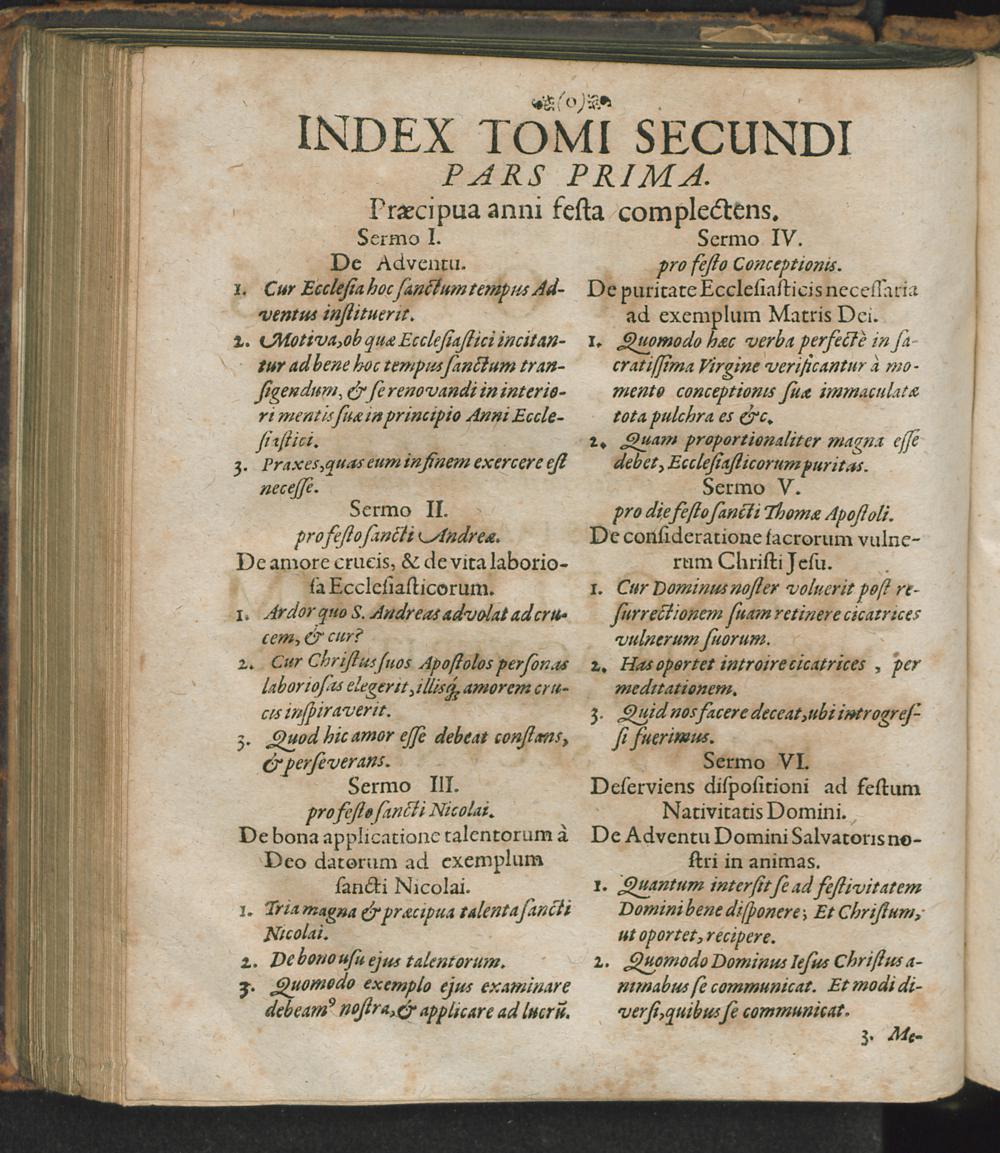 (o)
INDEX TOMI SECUNDI
PARS PRIMA.
Præcipua anni feſta complectens.
Sermo I.
De Adventu.
1. Cur Eccleſia hoc ſanctum tempus Ad-
ventus inſtituerit.
2. Motiva, ob quæ Eccleſiaſtici incitan-
tur ad bene hoc tempus ſanctum tran-
ſigendum, & ſe renovandi in interio-
ri mentis ſuæ in principio Anni Eccle-
ſiaſtici.
3. Praxes, quas eum in finem exercere eſt
neceſſe.
Sermo II.
pro feſto ſancti Andreæ.
De amore crucis, & de vita laborio-
ſa Eccleſiaſticorum.
1. Ardor quo S. Andreas advolat ad cru-
cem, & cur?
2. Cur Chriſtus ſuos Apoſtolos perſonas
laborioſas elegerit, illisq́; amorem cru-
cis inſpiraverit.
3. Quod hic amor eſſe debeat conſtans,
& perſeverans.
Sermo III.
pro feſto ſancti Nicolai.
De bona applicatione talentorum à
Deo datorum ad exemplum
ſancti Nicolai.
1. Tria magna & præcipua talenta ſancti
Nicolai.
2. De bono uſu ejus talentorum.
3. Quomodo exemplo ejus examinare
debeamꝰ noſtra, & applicare ad lucrũ.
Sermo IV.
pro feſto Conceptionis.
De puritate Eccleſiaſticis neceſſaria
ad exemplum Matris Dei.
1. Quomodo hæc verba perfectè in ſa-
cratiſſima Virgine verificantur à mo-
mento conceptionis ſuæ immaculatæ
tota pulchra es &c.
2. Quam proportionaliter magna eſſe
debet, Eccleſiaſticorum puritas.
Sermo V.
pro die feſto ſancti Thomæ Apoſtoli.
De conſideratione ſacrorum vulne-
rum Chriſti Jeſu.
1. Cur Dominus noſter voluerit poſt re-
ſurrectionem ſuam retinere cicatrices
vulnerum ſuorum.
2. Has oportet introire cicatrices, per
meditationem.
3. Quid nos facere deceat, ubi introgreſ-
ſi fuerimus.
Sermo VI.
Deſerviens diſpoſitioni ad feſtum
Nativitatis Domini.
De Adventu Domini Salvatoris no-
ſtri in animas.
1. Quantum interſit ſe ad feſtivitatem
Domini bene diſponere; Et Chriſtum,
ut oportet, recipere.
2. Quomodo Dominus Ieſus Chriſtus a-
nimabus ſe communicat. Et modi di-
verſi, quibus ſe communicat.
3. Me-